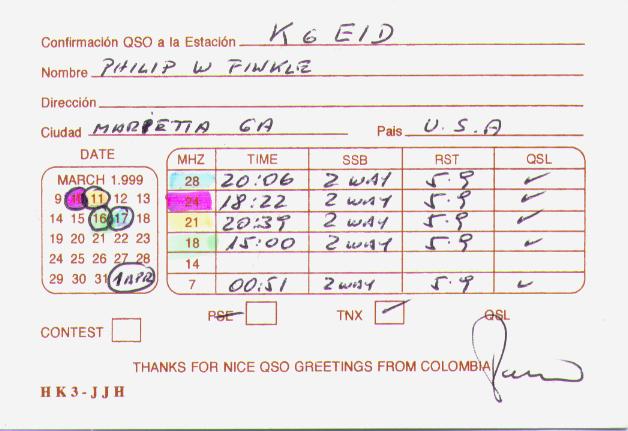 Confirmación QSO a la Estación K6EID
Nombre PHILIP W FINKLE
Dirección
Ciudad MARIETTA GA Pais U.S.A
DATE
MARCH 1.999
9 10 11 12 13
14 15 16 17 18
19 20 21 22 23
24 25 26 27 28
29 30 31 1 APR
MHZ TIME SSB RST QSL
28 20:06 2 WAY 5.9 ✓
24 18:22 2 WAY 5.9 ✓
21 20:39 2 WAY 5.9 ✓
18 15:00 2 WAY 5.9 ✓
14
7 00:51 2 WAY 5.9 ✓
CONTEST PSE TNX ✓ QSL
THANKS FOR NICE QSO GREETINGS FROM COLOMBIA
HK3-JJH